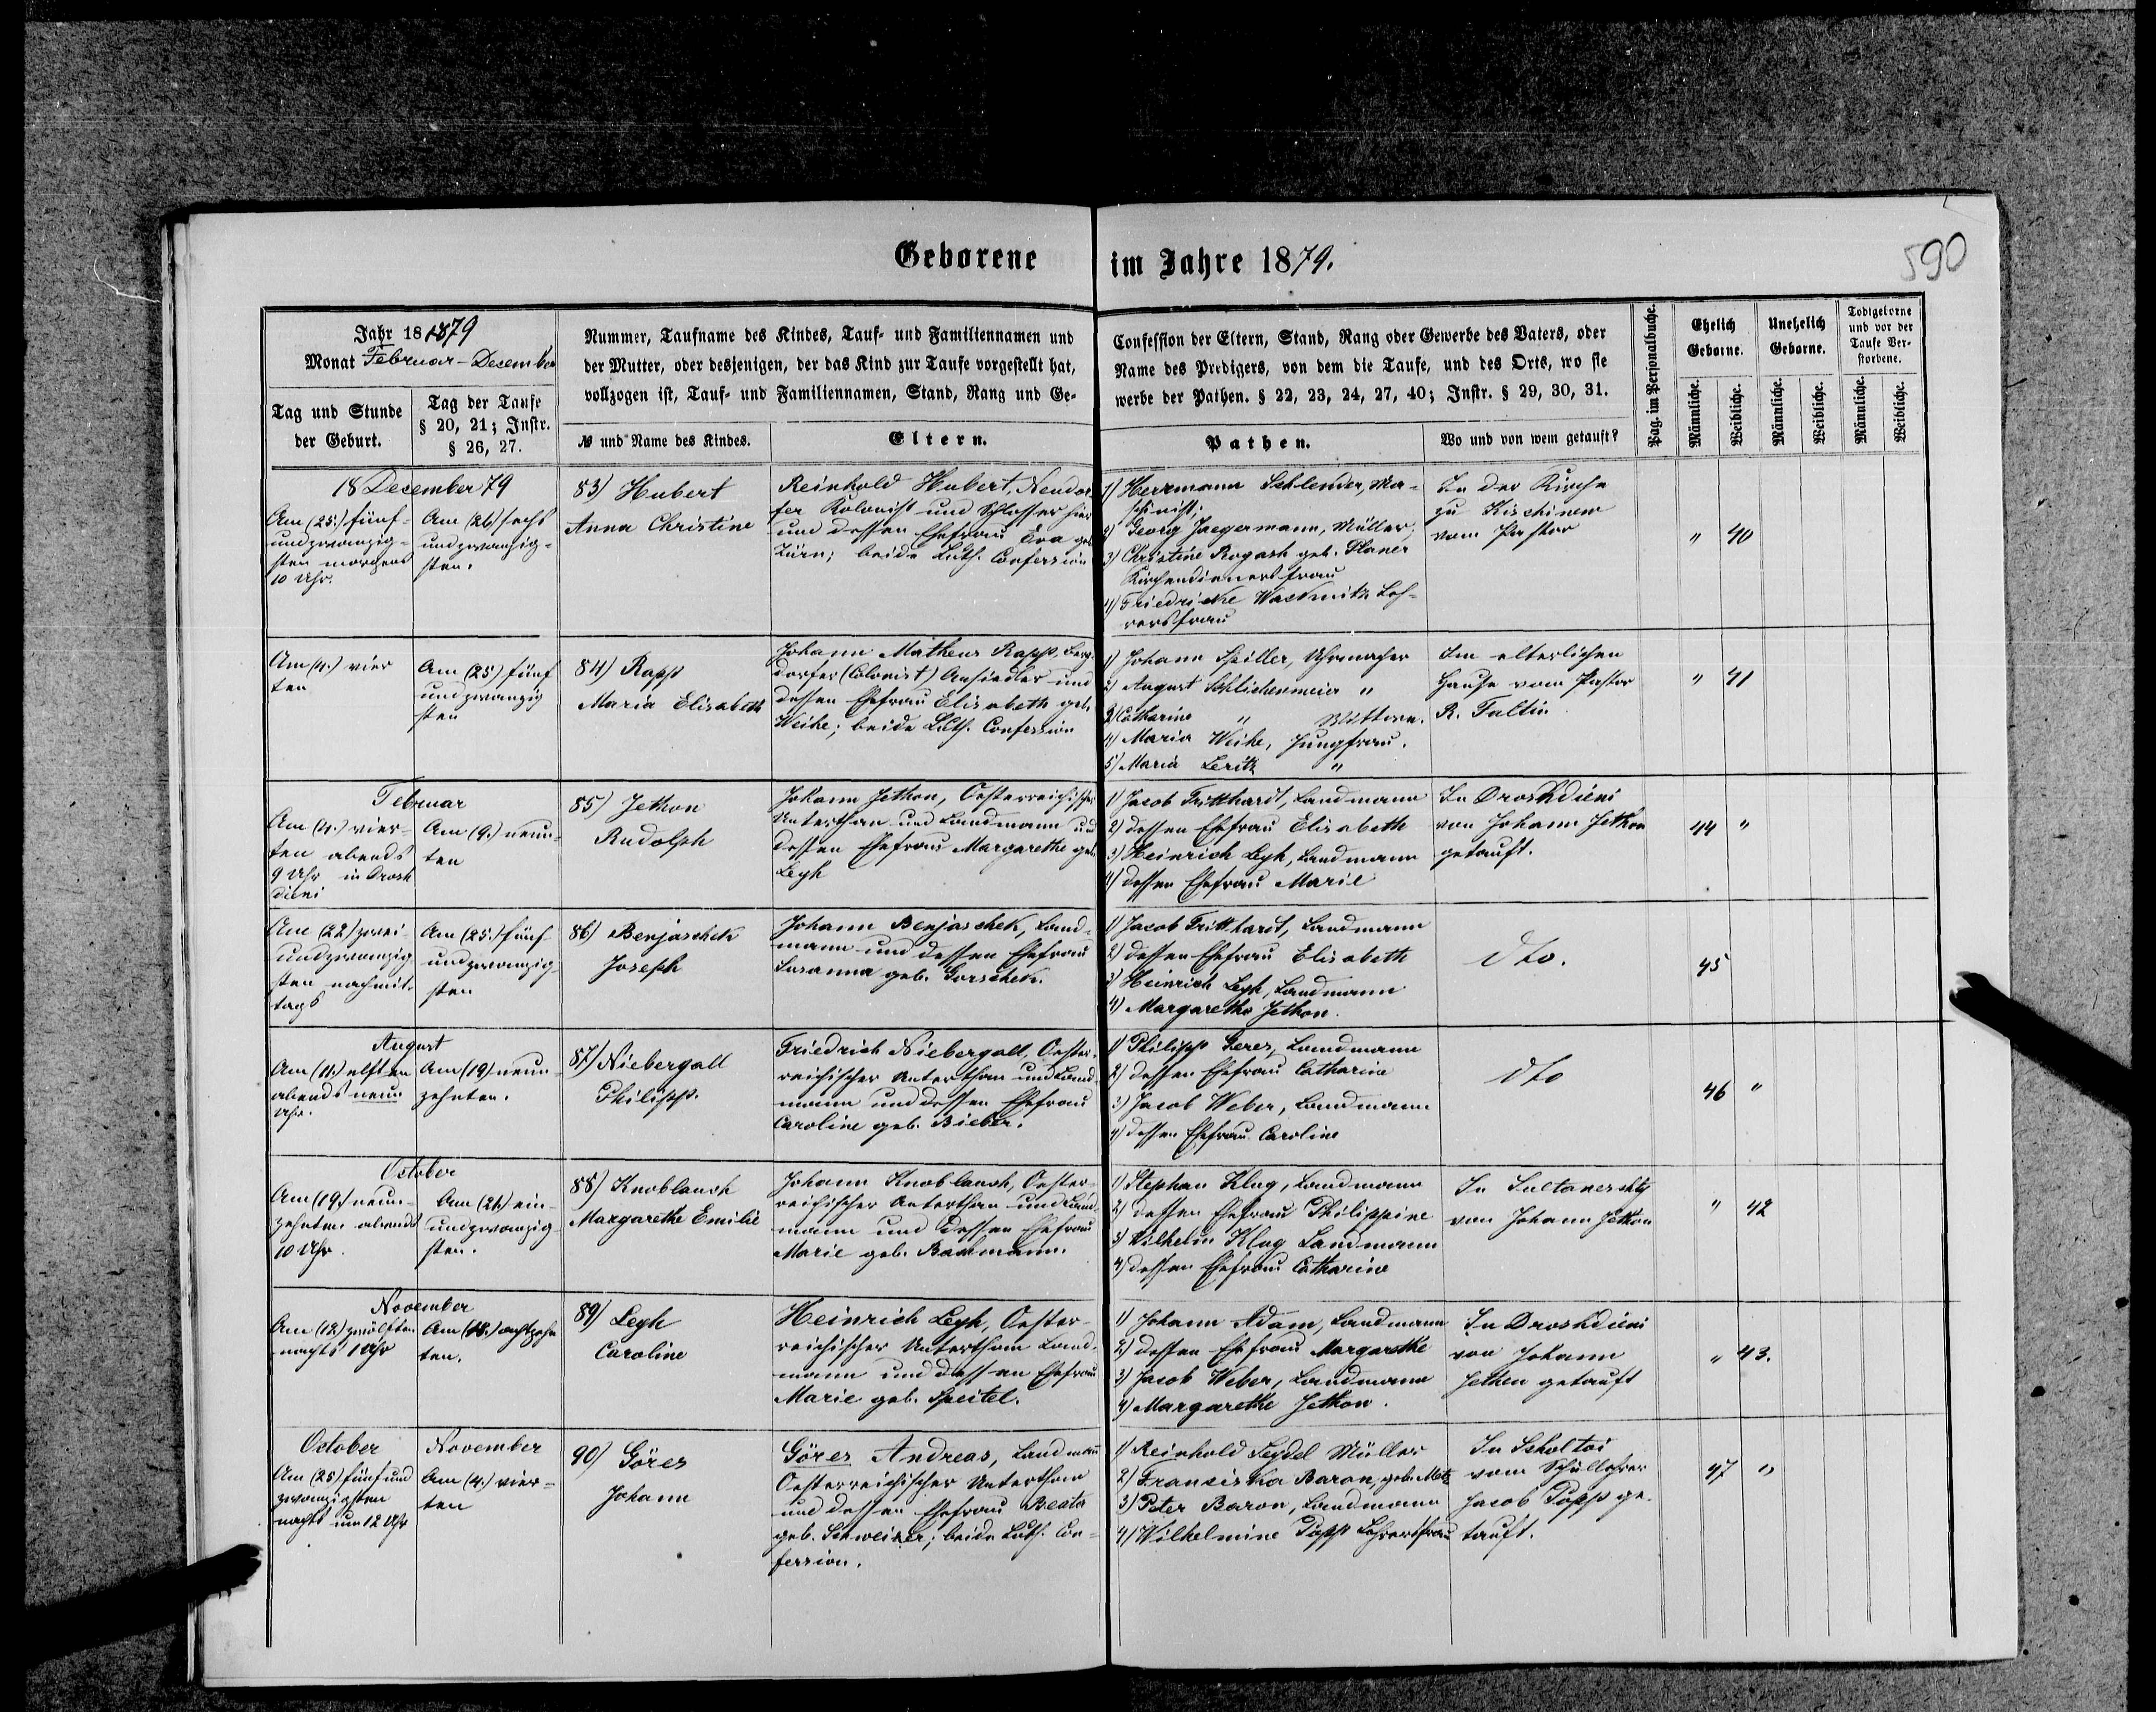 Geborene im Jahre 1879.
590
Jahr 18 1879
Monat Februar-December
Tag und Stunde
der Geburt.
Tag der Taufe
§ 20, 21; Instr.
§ 26, 27.
Nummer, Taufname des Kindes, Tauf- und Familiennamen und
der Mutter, oder desjenigen, der das Kind zur Taufe vorgestellt hat,
vollzogen ist, Tauf- und Familiennamen, Stand, Rang und Ge-
№ und Name des Kindes.
Eltern.
Confession der Eltern, Stand, Rang oder Gewerbe des Vaters, oder
Name des Predigers, von dem die Taufe, und des Orts, wo sie
werbe der Pathen. § 22, 23, 24, 27, 40; Instr. § 29, 30, 31.
Pathen.
Wo und von wem getauft?
Pag. im Personalbuche.
Ehelich
Geborne.
Unehelich
Geborne.
Todtgeborne
und vor der
Taufe Ver-
storbene.
Männliche.
Weibliche.
Männliche.
Weibliche.
Männliche.
Weibliche.
18 December 79
Am (25.) fünf-
undzwanzig-
sten morgens
10 Uhr.
Am (26) sechs
undzwanzig-
sten.
83) Hubert
Anna Christine
Reinhold Hubert, Neudor
fer Kolonist und Schlosser hier
und dessen Ehefrau Eva geb.
Zürn; beide Luth. Confession
1) Herrmann Schlender, Ma-
schinist;
2) Georg Jaegermann, Müller;
3) Christine Rogash geb. Planer
Kirchendienersfrau
4) Friedricke Wackmitz Leh-
rersfrau
In der Kirche
zu Kischinew
vom Pastor
" 40
Am (4.) vier
ten
Am (25) fünf
undzwanzig
sten
84) Rapp
Maria Elisabeth
Johann Matheus Rapp, Berg-
dorfer (Colonist) Ansiedler und
dessen Ehefrau Elisabeth geb.
Weihe; beide Luth. Confession
1) Johann Spiller, Uhrmacher
2) August Schlichenmeier "
3) Catharine " Wittwe.
4) Maria Weihe, Jungfrau.
5) Maria Leritz "
Im elterlichen
Hause vom Pastor
R. Faltin
" 41
Februar
Am (4.) vier-
ten abends
9 Uhr in Drosh
dieni
Am (9.) neun-
ten
85) Jethon
Rudolph
Johann Jethon, Oesterreichischer
Unterthan und Landmann und
dessen Ehefrau Margarethe geb.
Legh
1) Jacob Tritthardt, Landmann
2) dessen Ehefrau Elisabeth
3) Heinrich Legh, Landmann
4) dessen Ehefrau Marie
In Droshdieni
von Johann Jethon
getauft.
44 "
Am (22) zwei-
undzwanzig
sten nachmit-
tags
Am (25.) fünf-
undzwanzig-
sten
86) Benjaschek
Joseph
Johann Benjaschek, Land-
mann und dessen Ehefrau
Susanna geb. Gorschek.
1) Jacob Tritthardt, Landmann
2) dessen Ehefrau Elisabeth
3) Heinrich Legh, Landmann
4) Margarethe Jethon.
dto.
45
August
Am (11.) elften
abends neun
Uhr.
Am (19) neun-
zehnten.
87) Niebergall
Philipp.
Friedrich Niebergall, Oester-
reichischer Unterthan und Land-
mann und dessen Ehefrau
Caroline geb. Bieber.
1) Philipp Seres, Landmann
2) dessen Ehefrau Catharine
3) Jacob Weber, Landmann
4) dessen Ehefrau Caroline
dto
46 "
October
Am (19) neun-
zehnten abends
10 Uhr.
Am (21) ein-
undzwanzig
sten.
88) Knoblauch
Margarethe Emilie
Johann Knoblauch, Oester-
reichischer Unterthan und Land-
mann und dessen Ehefrau
Marie geb. Bachmann.
1) Stephan Klug, Landmann
2) dessen Ehefrau Philippine
3) Wilhelm Klug Landmann
4) dessen Ehefrau Catharine
In
von Johann Jethon
" 42
November
Am (12) zwölften
nachts 1 Uhr
Am (18.) achtzehn
ten.
89) Legh
Caroline
Heinrich Legh, Oester-
reichischer Unterthan Land-
mann und dessen Ehefrau
Marie geb. Speitel.
1) Johann Adam, Landmann
2) dessen Ehefrau Margarethe
3) Jacob Weber, Landmann
4) Margarethe Jethon.
In Droshdieni
von Johann
Jethon getauft
" 43.
October
Am (25) fünfund
zwanzigsten
nachts um 12 Uhr
November
Am (4.) vier-
ten
90) Göres
Johann
Göres Andreas, Landmann
Oesterreichischer Unterthan
und dessen Ehefrau Beata
geb. Schweizer; beide Luth. Con-
fession.
1) Reinhold Seydel Müller
2) Franciska Baron, geb. Metz
3) Peter Baron, Landmann
4) Wilhelmine Popp Lehrersfrau
In Scholtoi
vom Schullehrer
Jacob Popp ge-
tauft.
47 "